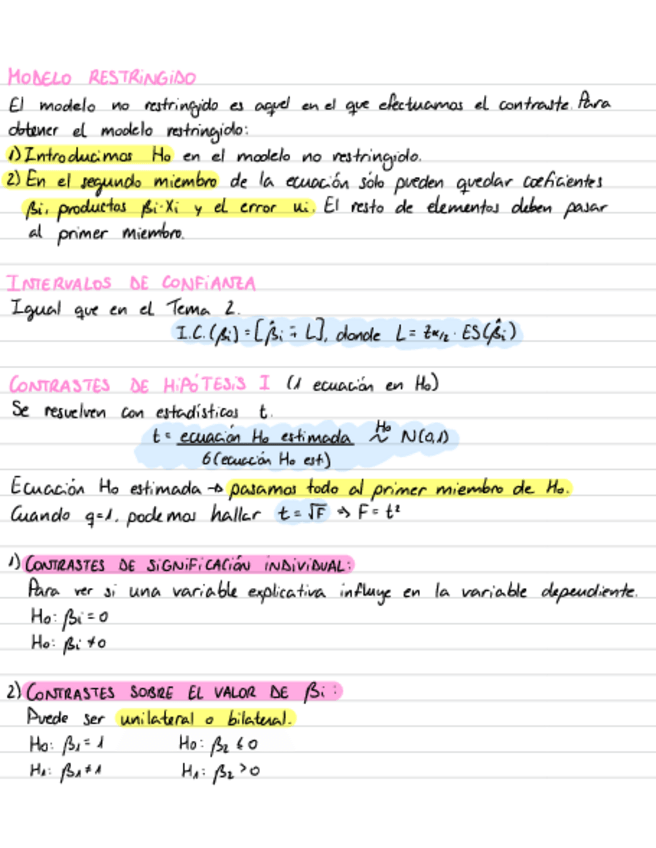 MODELO RESTRINGIDO
El modelo no restringido es aquel en el que efectuamos el contraste. Para
obtener el modelo restringido:
1) Introducimos Ho en el modelo no restringido.
2) En el segundo miembro de la ecuación sólo pueden quedar coeficientes
βi, productos βi·Xi y el error ui. El resto de elementos deben pasar
al primer miembro.
INTERVALOS DE CONFIANZA
Igual que en el Tema 2.
I.C.(βi) = [β̂i ∓ L], donde L = zα/2 · ES(β̂i)
CONTRASTES DE HIPÓTESIS I (1 ecuación en Ho)
Se resuelven con estadísticos t.
t = ecuación Ho estimada Ho ~ N(0,1)
σ(ecuación Ho est)
Ecuación Ho estimada → pasamos todo al primer miembro de Ho.
Cuando q=1, podemos hallar t = √F ⇒ F = t²
1) CONTRASTES DE SIGNIFICACIÓN INDIVIDUAL:
Para ver si una variable explicativa influye en la variable dependiente.
Ho: βi = 0
Ho: βi ≠ 0
2) CONTRASTES SOBRE EL VALOR DE βi:
Puede ser unilateral o bilateral.
Ho: β1 = 1 Ho: β2 ≤ 0
H1: β1 ≠ 1 H1: β2 > 0